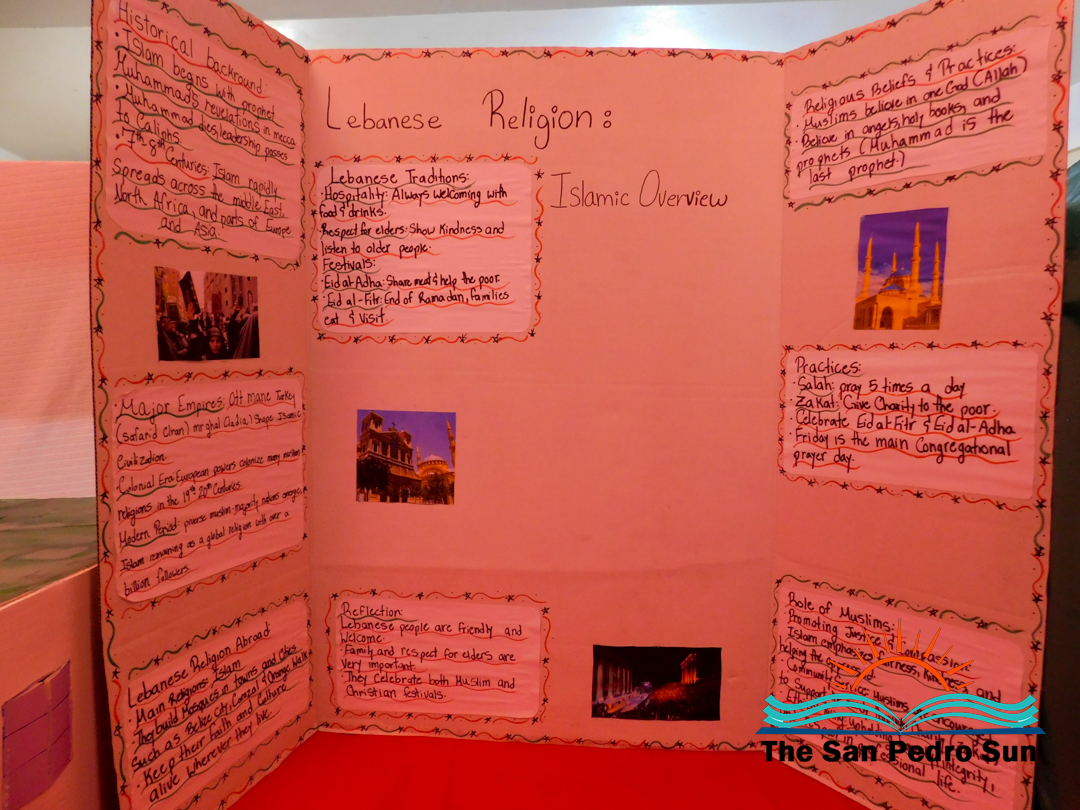 Historical backround
· Islam begins with prophet
Muhammads revelations in mecca
· Muhammad dies, leadership passes
to Caliphs
· 7th-8th Centuries: Islam rapidly
Spreads across the middle East,
North Africa, and parts of Europe
and Asia.
· Major Empires: Ott mane Turkey
(safarid (Iran) mrghal (ladia,) Shape Islamic
Civilization.
· Colonial Era: European powers colonize many muslim
religions in the 19th 20th Centuries.
Modern Period: muslim-majority nations
Islam remaining as a global religion with over a
billion followers.
Lebanese Religion Abroad
· Main Religions: Islam
They build Mosques in towns and cities
Such as Belize City, Corozal & Orange Walk
· Keep their faith and Culture
alive wherever they live.
Lebanese Religion:
Islamic Overview
Lebanese Traditions:
· Hospitality: Always Welcoming with
food & drinks.
· Respect for elders: Show Kindness and
listen to older people.
Festivals:
· Eid al-Adha: Share meat & help the poor.
· Eid al-Fitr: End of Ramadan, families
eat & Visit.
Reflection:
Lebanese people are friendly and
Welcome.
· Family and respect for elders are
very important
· They Celebrate both Muslim and
Christian festivals.
Religious Beliefs & Practices:
· Muslims believe in one God (Allah)
· Believe in angels, holy books, and
prophets (Muhammad is the
last prophet.)
Practices:
· Salah: pray 5 times a day
· Zakat: Give Charity to the poor.
Celebrate Eid al-Fitr & Eid al-Adha
· Friday is the main Congregational
prayer day.
Role of Muslims:
Promoting Justice & Compassion
Islam emphasizes Kindness and
helping the
· Community Service: Muslims
to Support
integrity,
professional life.
The San Pedro Sun